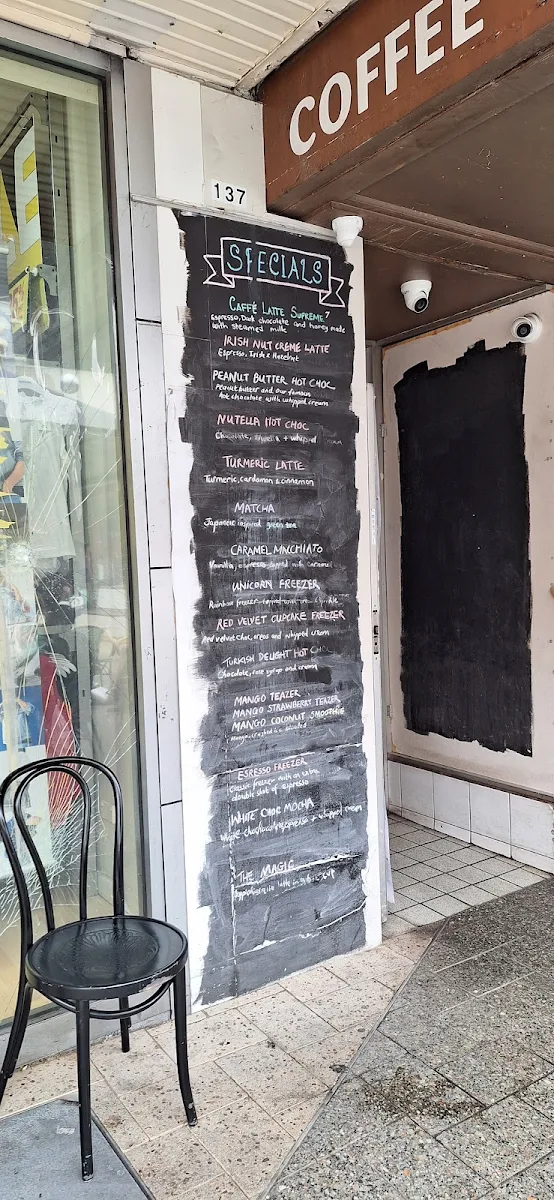 COFFEE
137
SPECIALS
CAFFÉ LATTE SUPREME
Espresso, Dark chocolate and honey made
with steamed milk
IRISH NUT CREME LATTE
Espresso, Irish & Hazelnut
PEANUT BUTTER HOT CHOC
Peanut butter and our famous
hot chocolate with whipped cream
NUTELLA HOT CHOC
Chocolate, + whipped
TURMERIC LATTE
Turmeric, cardamon & cinnamon
MATCHA
Japanese inspired green tea
CARAMEL MACCHIATO
Vanilla, espresso topped with caramel
UNICORN FREEZER
Rainbow freezer
RED VELVET CUPCAKE FREEZER
Red velvet choc, oreos and whipped cream
TURKISH DELIGHT HOT CHOC
Chocolate, rose syrup and cream
MANGO TEAZER
MANGO STRAWBERRY TEAZER
MANGO COCONUT SMOOTHIE
ESPRESSO FREEZER
Classic freezer with an extra
double shot of espresso
WHITE CHOC MOCHA
White espresso + whipped cream
THE MAGIC
latte in cup